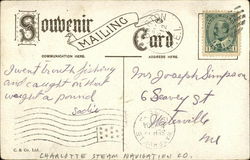 Souvenir
MAILING
Card
COMMUNICATION HERE.
ADDRESS HERE.
I went trouth fishing
and caught on that
weight a pound
Sadie
Mrs Joseph Simpson
6 Seavey St
Waterville
Me
C. & Co. Ltd.
CHARLOTTE STEAM NAVIGATION CO.